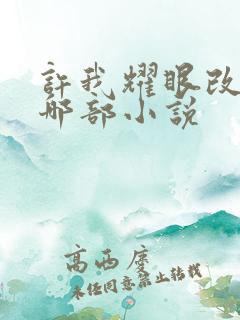 許我耀眼改
哪部小說
高西度
未任同意禁止转载